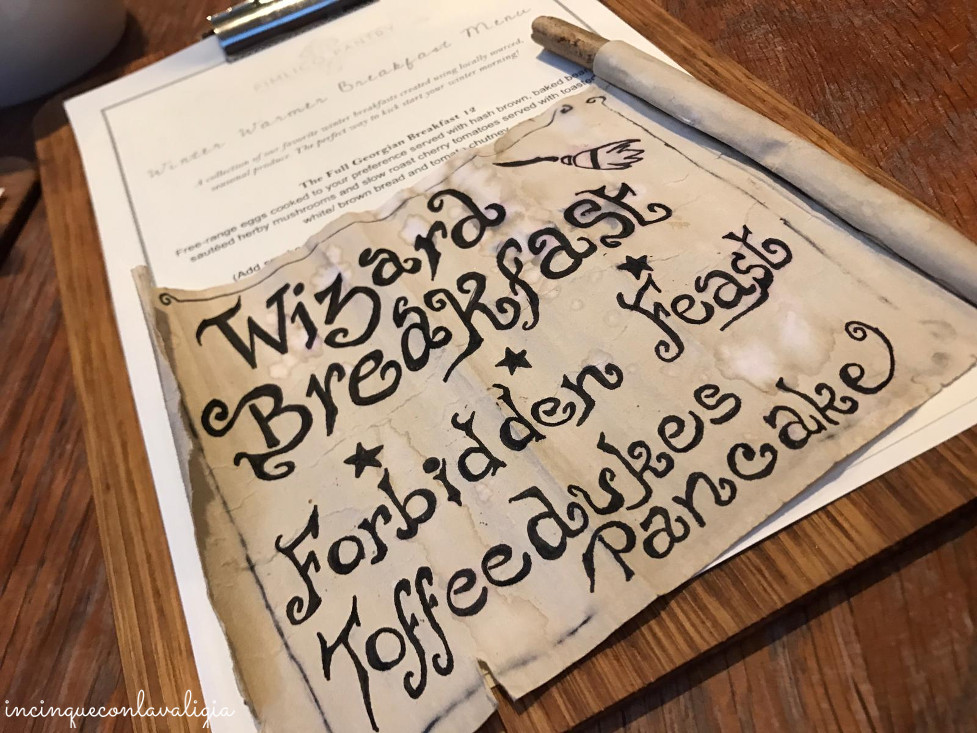 PIMLICO PANTRY
Winter Warmer Breakfast Menu
A collection of our favorite winter breakfasts created using locally sourced,
seasonal produce. The perfect way to kick start your winter morning!
The Full Georgian Breakfast 12
Free-range eggs cooked to your preference served with hash brown, baked
sautéed herby mushrooms and slow roast cherry tomatoes served with
white/ brown bread and chutney
(Add
Wizard
Breakfast
Forbidden Feast
Toffeedukes
Pancake
incinqueconlavaligia